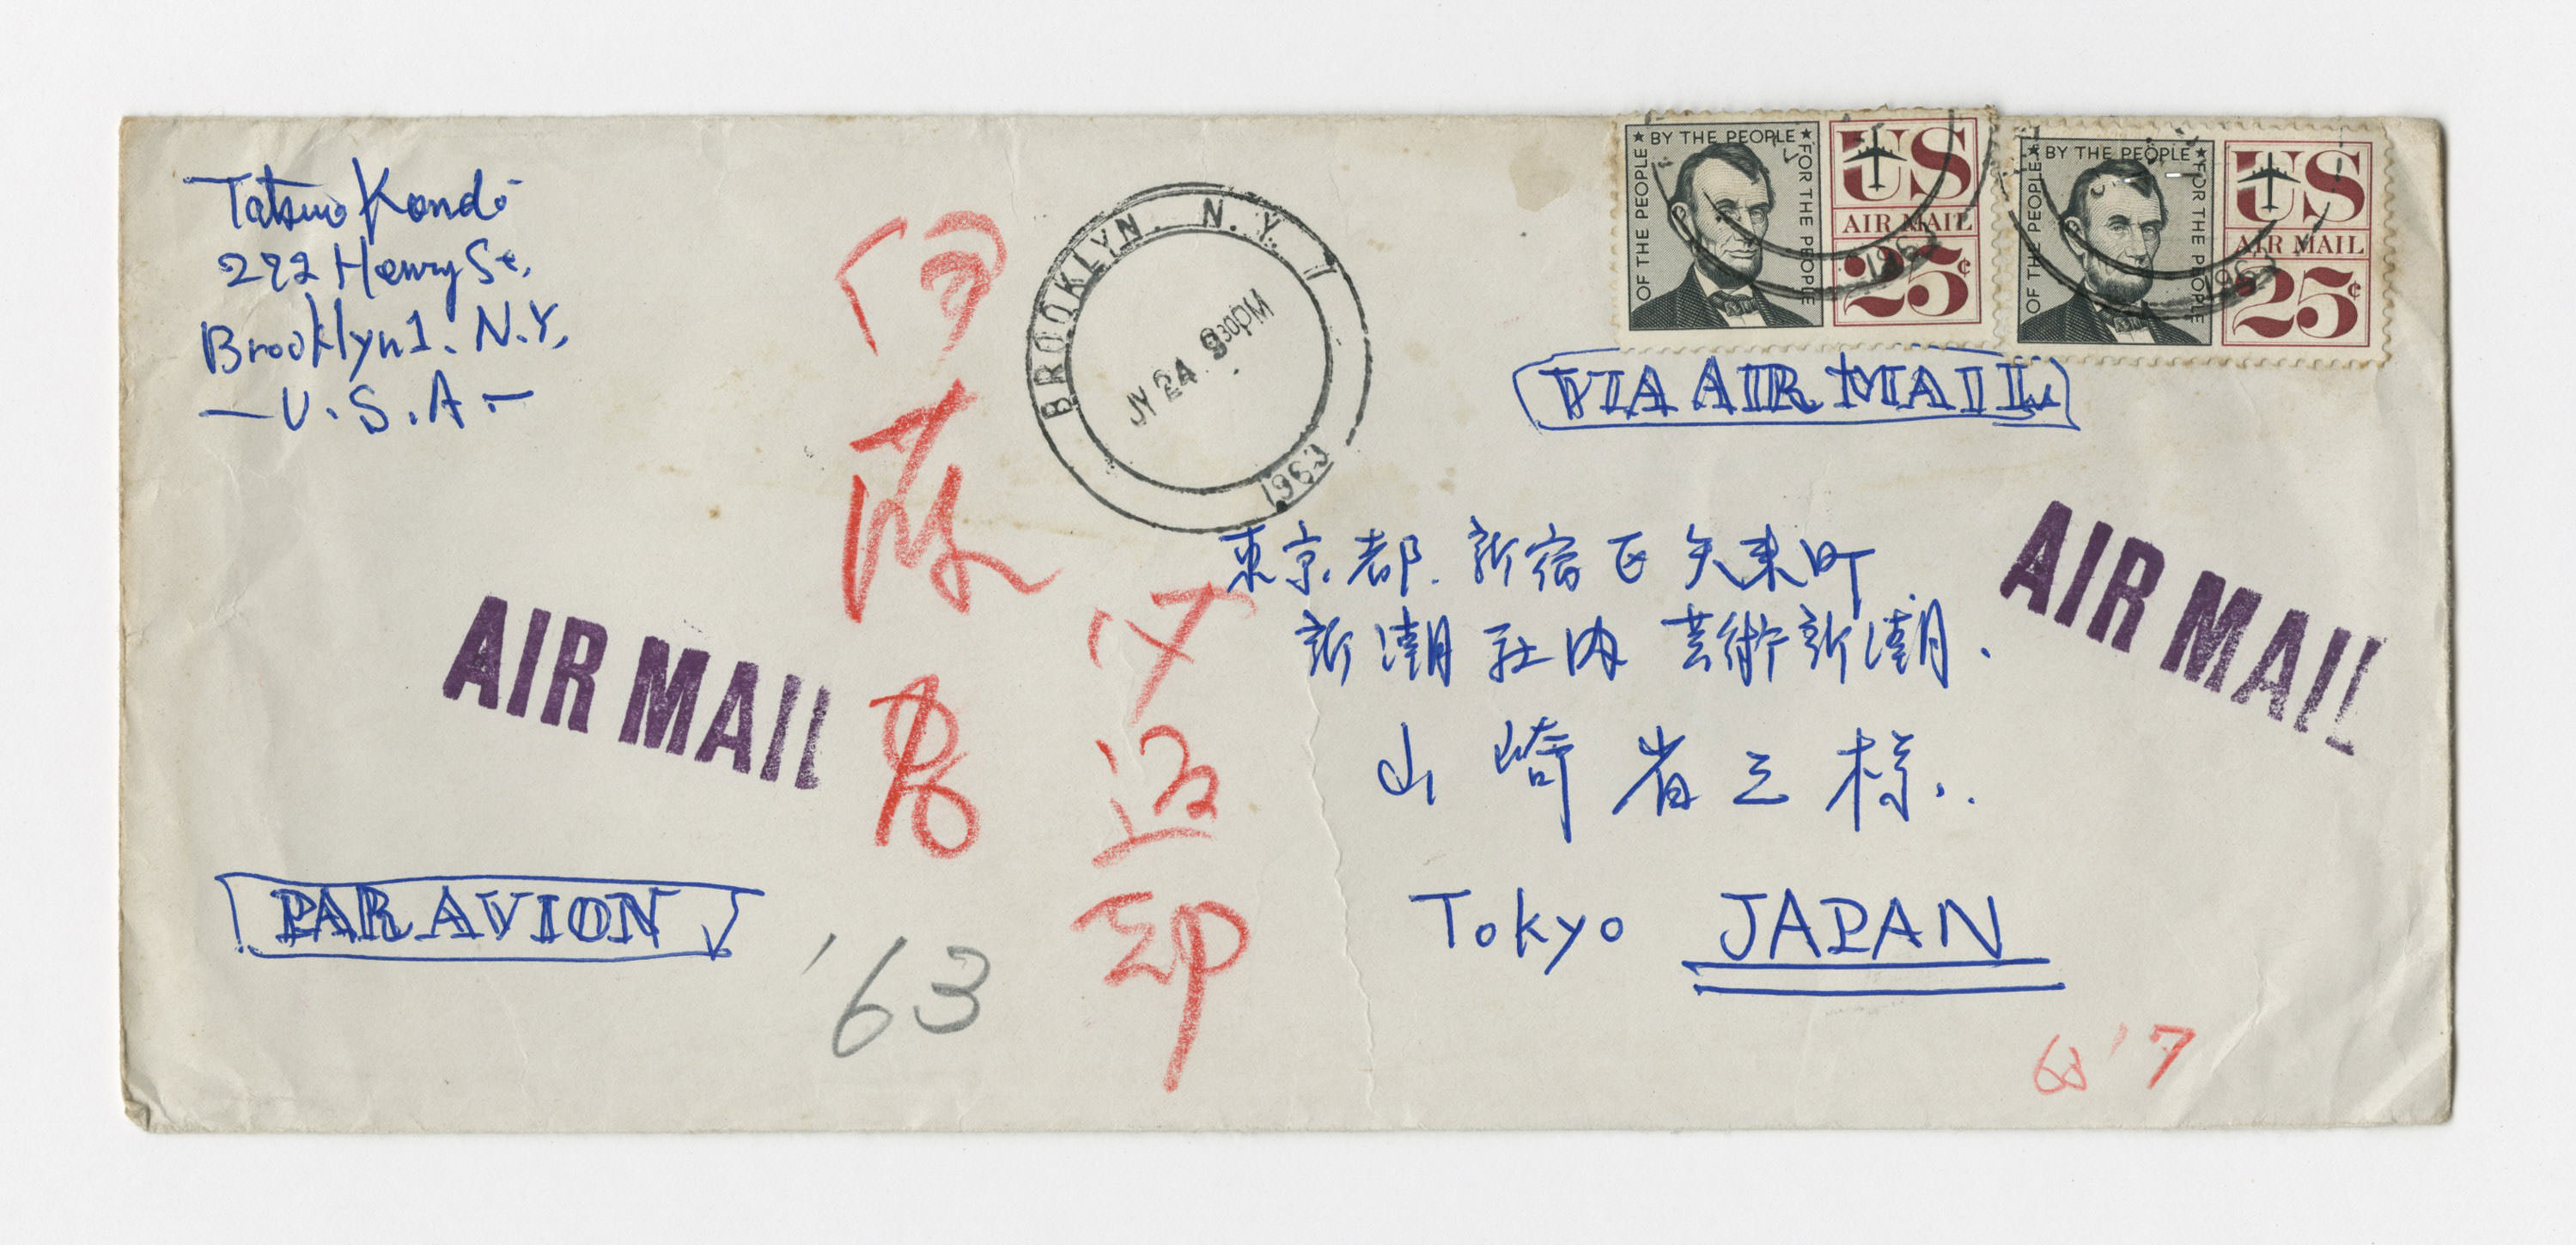 Tatsuo Kondō
272 Henry St.
Brooklyn 1. N.Y.
— U.S.A —
BROOKLYN. N.Y. 1
JY 24 9 30PM
1963
OF THE PEOPLE ★ BY THE PEOPLE ★ FOR THE PEOPLE
US
AIR MAIL
25¢
1963
OF THE PEOPLE ★ BY THE PEOPLE ★ FOR THE PEOPLE
US
AIR MAIL
25¢
1963
VIA AIR MAIL
東京都. 新宿区矢来町
新潮社内 芸術新潮.
山崎省三様..
Tokyo JAPAN
AIR MAIL
AIR MAIL
PAR AVION
藤君
必返却
'63
63'7